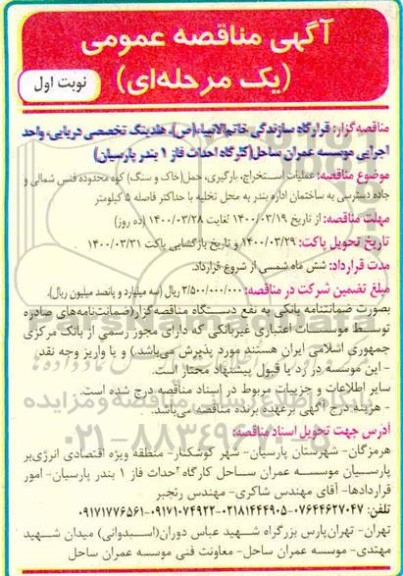 آگهی مناقصه عمومی
(یک مرحله‌ای)
نوبت اول
مناقصه‌گزار: قرارگاه سازندگی خاتم‌الانبیاء(ص)، هلدینگ تخصصی دریایی، واحد
اجرایی موسسه عمران ساحل(کارگاه احداث فاز ۱ بندر پارسیان)
موضوع مناقصه: عملیات استخراج، بارگیری، حمل(خاک و سنگ) کوه محدوده فنس شمالی و
جاده دسترسی به ساختمان اداره بندر به محل تخلیه با حداکثر فاصله ۵ کیلومتر
مهلت مناقصه: از تاریخ ۱۴۰۰/۰۳/۱۹ لغایت ۱۴۰۰/۰۳/۲۸ (ده روز)
تاریخ تحویل پاکت: ۱۴۰۰/۰۳/۲۹ و تاریخ بازگشایی پاکت ۱۴۰۰/۰۳/۳۱
مدت قرارداد: شش ماه شمسی از شروع قرارداد.
مبلغ تضمین شرکت در مناقصه: ۳/۵۰۰/۰۰۰/۰۰۰ ریال (سه میلیارد و پانصد میلیون ریال).
بصورت ضمانتنامه بانکی به نفع دستگاه مناقصه‌گزار(ضمانت‌نامه‌های صادره
توسط موسسات اعتباری غیربانکی که دارای مجوز رسمی از بانک مرکزی
جمهوری اسلامی ایران هستند مورد پذیرش می‌باشد.) و یا واریز وجه نقد.
- این موسسه در رد یا قبول پیشنهاد مختار است.
سایر اطلاعات و جزییات مربوط در اسناد مناقصه درج شده است.
- هزینه درج آگهی برعهده برنده مناقصه می‌باشد.
۰۲۱-۸۸۳۴۹۶
آدرس جهت تحویل اسناد مناقصه:
هرمزگان- شهرستان پارسیان- شهر کوشکنار- منطقه ویژه اقتصادی انرژی‌بر
پارسیان موسسه عمران ساحل کارگاه احداث فاز ۱ بندر پارسیان- امور
قراردادها- آقای مهندس شاکری- مهندس رنجبر
تلفن: ۰۷۶۴۴۶۲۷۰۴۷-۰۲۱۸۱۴۴۴۹۰۵-۰۹۱۷۱۰۷۴۹۲۲-۰۹۱۷۱۷۷۶۵۶۱
تهران- تهران‌پارس بزرگراه شهید عباس دوران(اسبدوانی) میدان شهید
مهتدی- موسسه عمران ساحل- معاونت فنی موسسه عمران ساحل